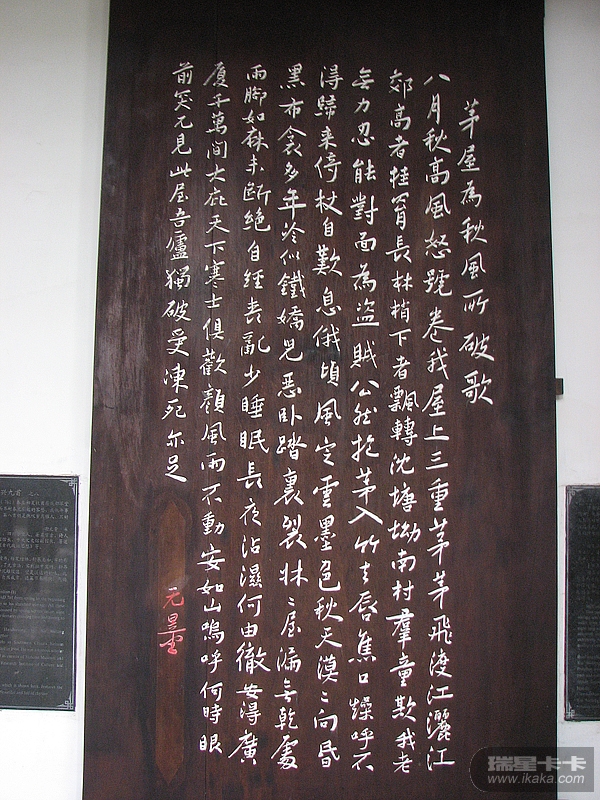 茅屋為秋風所破歌
八月秋高風怒號卷我屋上三重茅茅飛渡江灑江
郊高者挂罥長林梢下者飄轉沈塘坳南村羣童欺我老
無力忍能對面為盜賊公然抱茅入竹去唇焦口燥呼不
得歸来倚杖自歎息俄頃風定雲墨色秋天漠〻向昏
黑布衾多年冷似鐵嬌兒惡卧踏裏裂牀〻屋漏無乾處
雨脚如麻未斷絕自經喪乱少睡眠長夜沾濕何由徹安得廣
廈千萬間大庇天下寒士俱歡顏風雨不動安如山嗚呼何時眼
前突兀見此屋吾廬獨破受凍死亦足
瑞星卡卡
www.ikaka.com